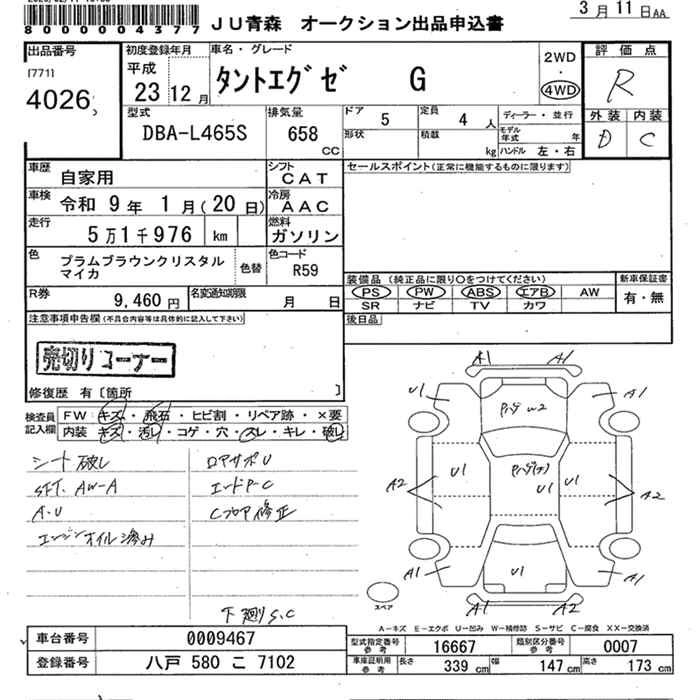 8000004377
JU青森 オークション出品申込書
3月11日AA
出品番号 [771] 4026
初度登録年月 平成 23 12月
車名・グレード タントエグゼ G
2WD・4WD
評価点 R
外装 D 内装 C
型式 DBA-L465S
排気量 658 CC
ドア 5 定員 4人 ディーラー・並行
形状 積載 kg モデル年式 年 ハンドル 左・右
車歴 自家用
シフト CAT
セールスポイント(正常に機能するものに限ります)
車検 令和 9年 1月(20日)
冷房 AAC
走行 5万1千976 km
燃料 ガソリン
色 プラムブラウンクリスタルマイカ 色替
色コード R59
装備品(純正品に限り○をつけてください) 新車保証書
PS PW ABS エアB AW 有・無
SR ナビ TV カワ
R券 9,460円 名変通知期限 月 日
後日品
注意事項申告欄(不具合内容等は具体的に記入して下さい)
売切りコーナー
修復歴 有〔箇所 〕
検査員記入欄 FW キズ・飛石・ヒビ割・リペア跡・×要
内装 キズ・汚レ・コゲ・穴・スレ・キレ・破レ
シート破レ
SFT. AW-A
A・U
エンジンオイル滲み
ロアサポU
エンドP-C
Cフロア修正
下廻りS.C
A1 A1
U1 A1
U1 U1 U1
A2 A2
U1
A1 A1
A1 A2
スペア
A-キズ E-エクボ U-凹み W-補修跡 S-サビ C-腐食 XX-交換済
車台番号 0009467
登録番号 八戸 580 こ 7102
型式指定番号 参考 16667 類別区分番号 参考 0007
車庫証明用 参考 長さ 339cm 幅 147cm 高さ 173cm